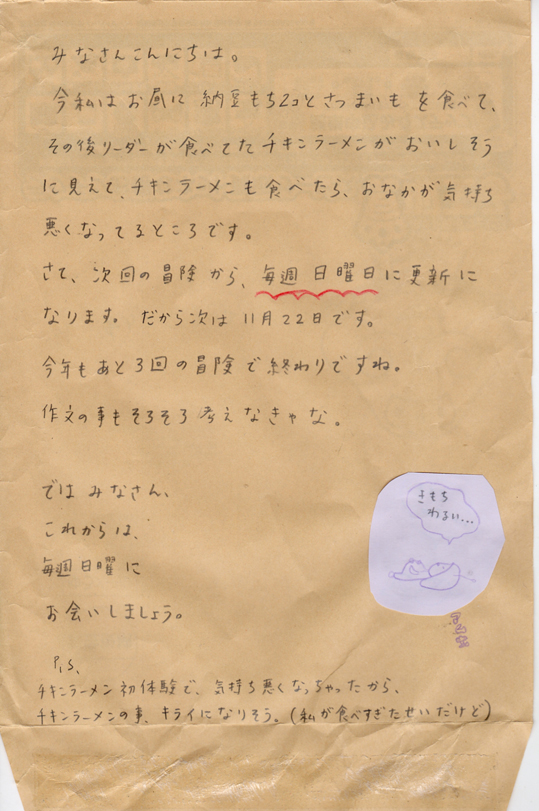 みなさんこんにちは。
今私はお昼に 納豆もち2コとさつまいもを食べて、
その後リーダーが食べてたチキンラーメンがおいしそう
に見えて、チキンラーメンも食べたら、おなかが気持ち
悪くなってるところです。
さて、次回の冒険から、毎週日曜日に更新に
なります。だから次は11月22日です。
今年もあと3回の冒険で終わりですね。
作文の事もそろそろ考えなきゃな。
では みなさん、
これからは、
毎週日曜に
お会いしましょう。
きもち
わるい…
P.S、
チキンラーメン初体験で、気持ち悪くなっちゃったから、
チキンラーメンの事、キライになりそう。(私が食べすぎたせいだけど)